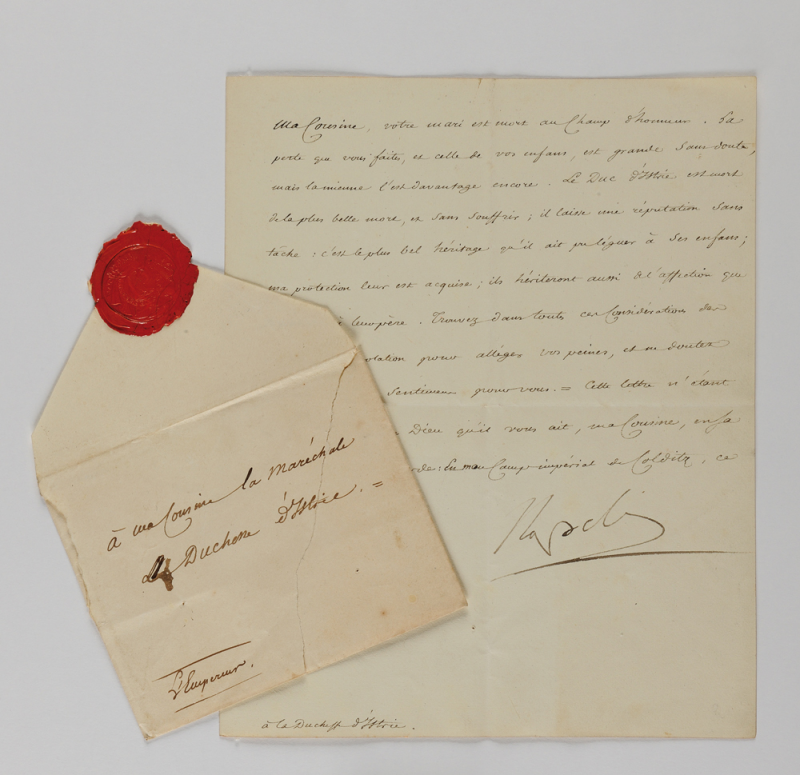 Ma Cousine, votre mari est mort au Champ d'honneur. La
perte que vous faites, et celle de vos enfans, est grande sans doute,
mais la mienne l'est davantage encore. Le Duc d'Istrie est mort
de la plus belle mort, et sans souffrir; il laisse une réputation sans
tâche: c'est le plus bel héritage qu'il ait pu léguer à ses enfans;
ma protection leur est acquise; ils hériteront aussi de l'affection que
leur père. Trouvez dans toutes ces Considérations des
pour alléger vos peines, et ne doutez
sentimens pour vous. = Cette lettre n'étant
Dieu qu'il vous ait, ma Cousine, en sa
En mon Camp impérial de Colditz, ce
à la Duchesse d'Istrie.
à ma Cousine la Maréchale
Duchesse d'Istrie. =
L'Empereur.